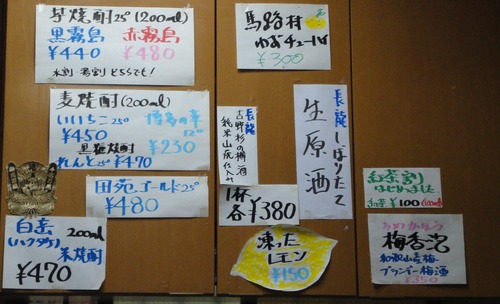 芋焼酎25°(200ml)
黒霧島 赤霧島
¥440 ¥480
水割 湯割 どちらでも!
麦焼酎(200ml)
いいちこ25° 博多の華
¥450 12°
黒糖焼酎 ¥230
れんと25° ¥470
田苑ゴールド25°
¥480
白岳 200ml
(ハクタケ) 米焼酎
¥470
馬路村
ゆずチューハイ
¥300
長龍
吉野杉の樽酒
純米山廃仕込み
1杯
各 ¥380
長龍 しぼりたて
生原酒
凍った
レモン
¥150
紅茶割り
はじめました
¥100
梅香泡
和歌山産梅
ブランデー梅酒
¥350